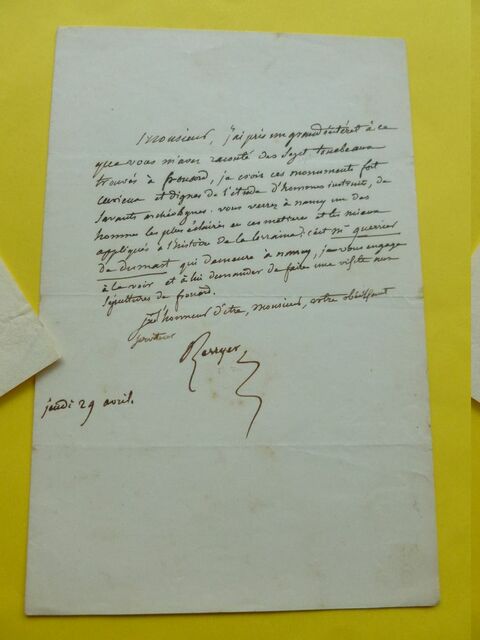 Monsieur, j'ai pris un grand intérêt à ce
que vous m'avez raconté des sept tombeaux
trouvés à frouard, je crois ces monuments fort
curieux et dignes de l'étude d'hommes instruits, de
savants archéologues. vous verrez à nancy un des
homme les plus éclairés en ces matieres et le mieux
appliqués à l'histoire de la lorraine; c'est mr guerrier
de dumast qui demeure à nancy, je vous engage
à le voir et à lui demander de faire une visite aux
sépultures de frouard.
j'ai l'honneur d'être, monsieur, votre obéissant
serviteur
Berryer
jeudi 29 avril.